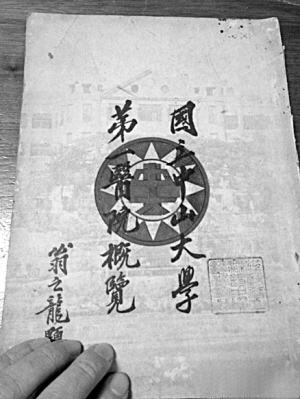 國立中山大學
第一醫院概覽
翁之龍題